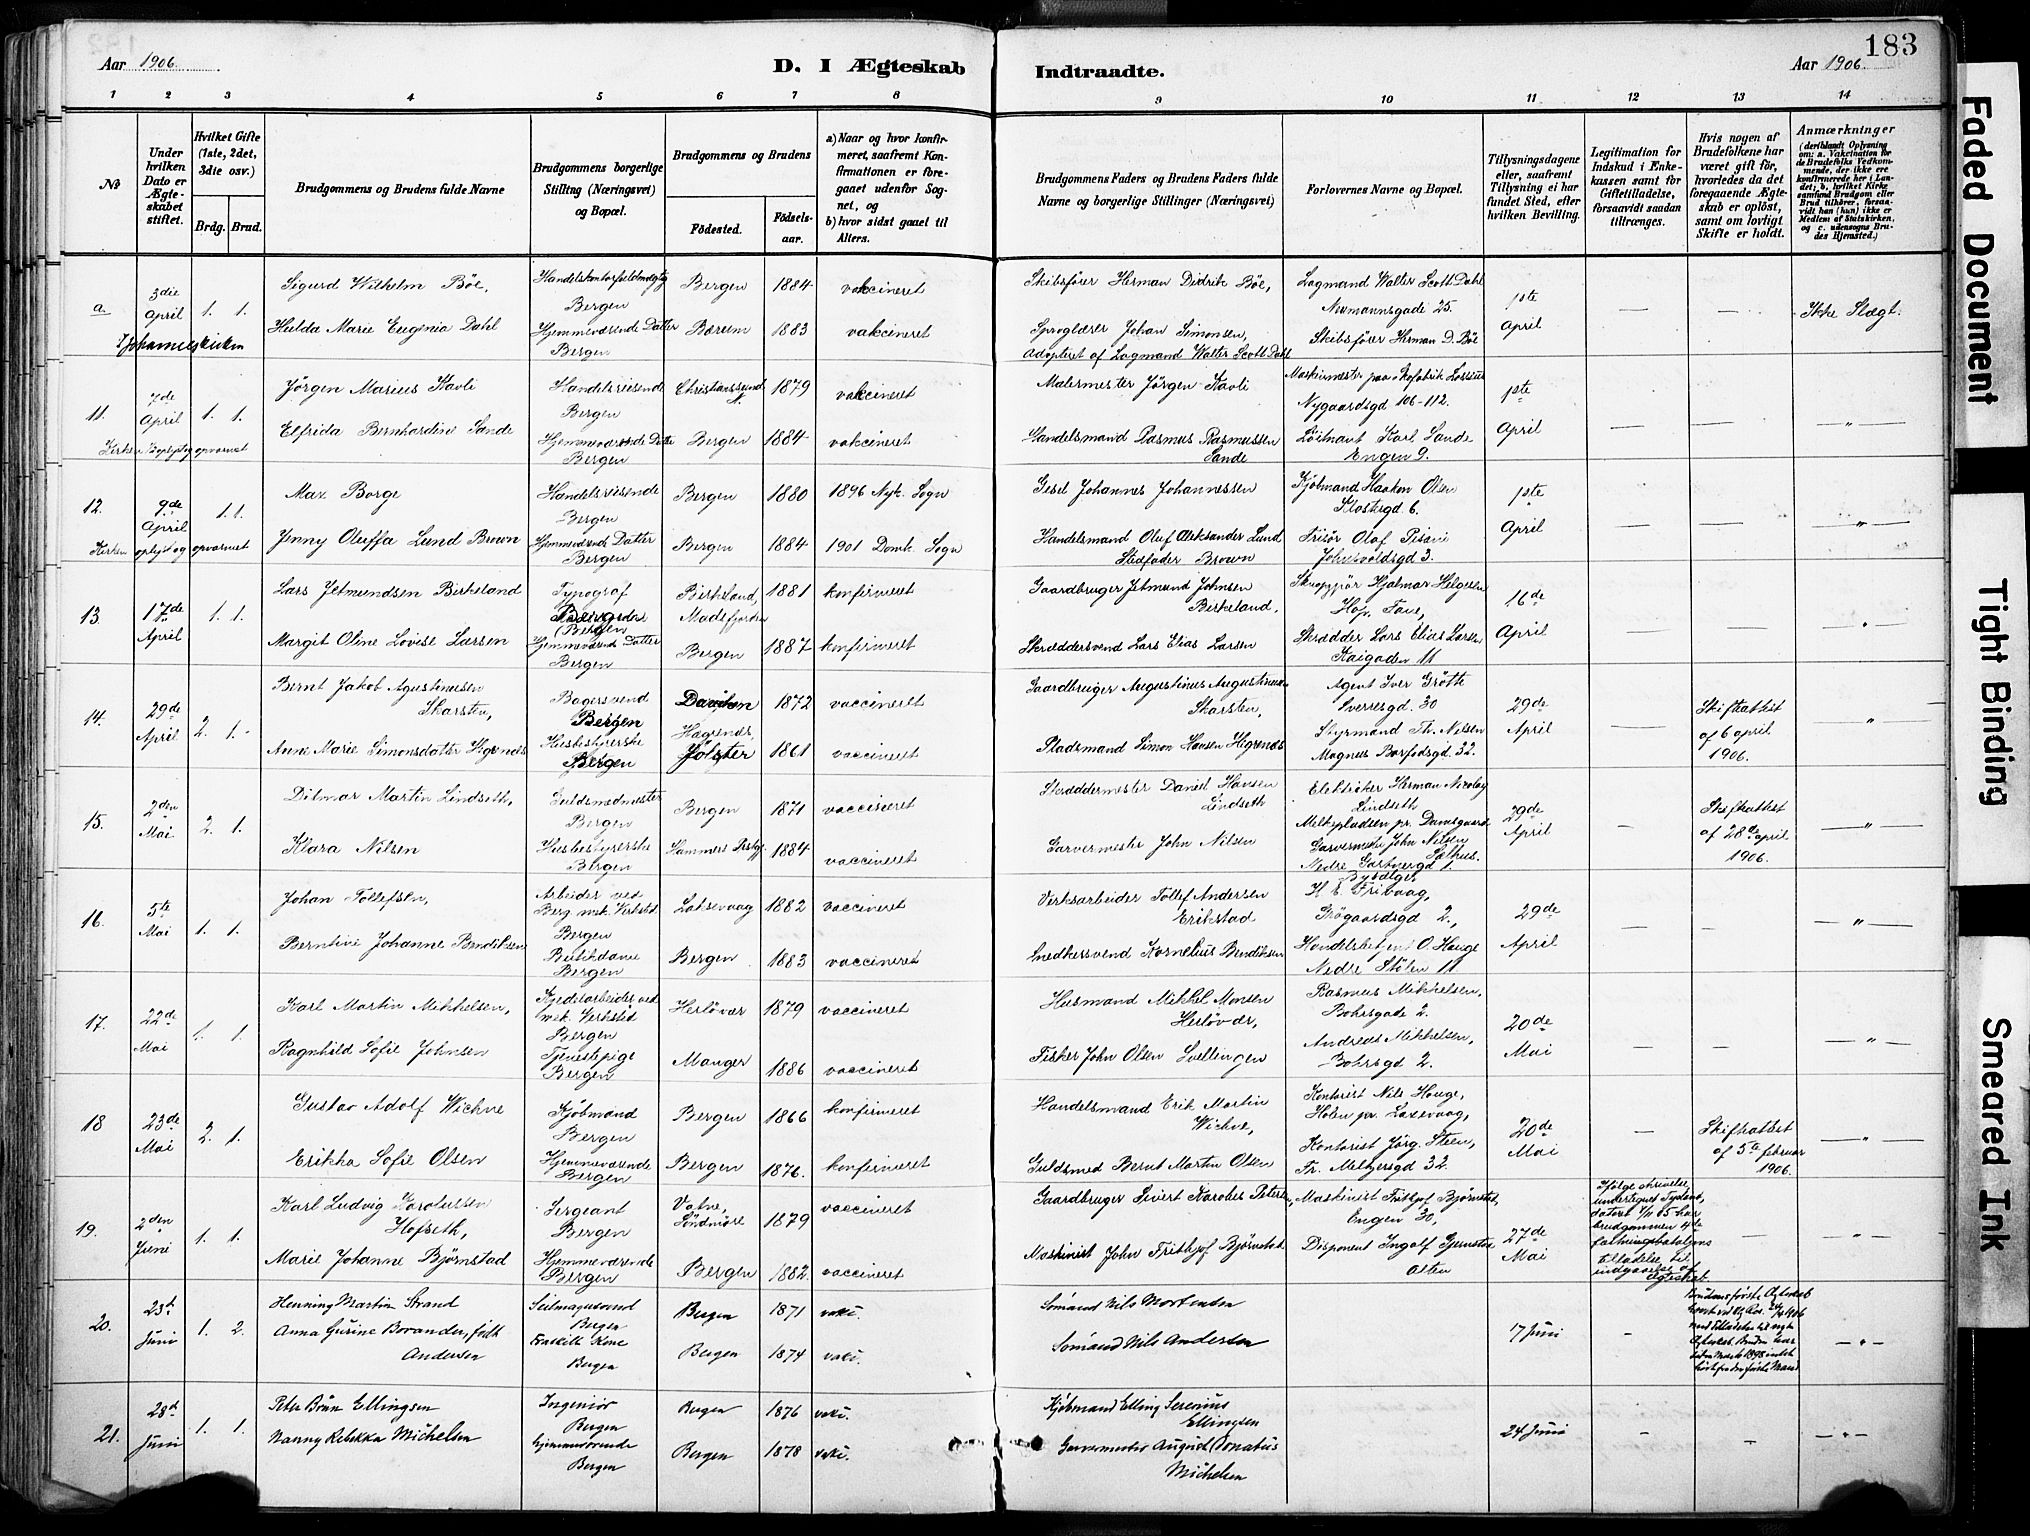 183
Aar 1906.
D. I Ægteskab
Indtraadte.
Aar 1906.
1 2 3 4 5 6 7 8 9 10 11 12 13 14
No
Under hvilken Dato er Ægteskabet stiftet.
Hvilket Gifte (1ste, 2det, 3die osv.)
Brdg. Brud.
Brudgommens og Brudens fulde Navne
Brudgommens borgerlige Stilling (Næringsvei) og Bopæl.
Brudgommens og Brudens
Födested.
Födsels-aar.
a) Naar og hvor konfirmeret, saafremt Konfirmationen er foregaaet udenfor Sognet, og
b) hvor sidst gaaet til Alters.
Brudgommens Faders og Brudens Faders fulde Navne og borgerlige Stillinger (Næringsvei)
Forlovernes Navne og Bopæl.
Tillysningsdagene eller, saafremt Tillysning ei har fundet Sted, efter hvilken Bevilling.
Legitimation for Indskud i Enkekassen samt for Giftetilladelse, forsaavidt saadan tiltrænges.
Hvis nogen af Brudefolkene har været gift för, hvorledes da det foregaaende Ægteskab er oplöst, samt om lovligt Skifte er holdt.
Anmærkninger
(deriblandt Oplysning om: a. Vakcination for de Brudefolks Vedkommende, der ikke ere konfirmerede her i Landet; b. hvilket Kirkesamfund Brudgom eller Brud tilhörer, forsaavidt han (hun) ikke er Medlem af Statskirken, og c. udensogns Brudes Hjemsted.)
a. 3die April 1. 1.
Sigurd Wilhelm Böe, Bergen Bergen 1884 vakcineret
Skibsförer Herman Didrik Böe, Lagmand Walter Scott Dahl
Nermannsgade 25. 1ste April — — Ikke Slægt.
Hulda Marie Eugenia Dahl Hjemmeværende Datter Bergen Bærum 1883 vakcineret
Sproglærer Johan Simonsen, adopteret af Lagmand Walter Scott Dahl
Skibsförer Herman D. Böe
I Johanneskirken
11. 7de April 1. 1.
Jörgen Marius Kavli Handelsreisende Bergen Christianssund N. 1879 vakcineret
Malermester Jörgen Kavli
Nygaardsgd 106-112. 1ste April — — "
Elfrida Bernhardine Sande Hjemmeværende Datter Bergen Bergen 1884 vakcineret
Handelsmand Rasmus Rasmussen Sande
Löitnant Karl Sande Engen 9.
Kirken oplyst og opvarmet
12. 9de April 1. 1.
Max Borge Handelsreisende Bergen Bergen 1880 1896 Nyk. Sogn
Johannes Johannessen Kjöbmand Haakon Olsen Klostergd 6.
1ste April — — "
Jenny Oluffa Lund Brown Hjemmeværende Datter Bergen Bergen 1884 1901 Domk. Sogn
Handelsmand Oluf Aleksander Lund Stedfader Brown
Frisör Olaf Pisani 3.
Kirken oplyst og opvarmet
13. 17de April 1. 1.
Lars Jetmundsen Birkeland Typograf Bergen Birkeland, Madsfjorden 1881 konfirmeret
Gaardbruger Jetmund Johnsen Birkeland.
Hjalmar Helgesen Hop, Fane, 16de April — — "
Margit Oline Lovise Larsen Hjemmeværende Datter Bergen Bergen 1887 konfirmeret
Skræddersvend Lars Elias Larsen
Skrædder Lars Elias Larsen Kaigaden 11
14. 29de April 2. 1.
Bernt Jakob Agustinusen Skarsten, Bagersvend Bergen 1872 vaccineret
Gaardbruger Augustinus Augustinusen Skarsten,
Agent Iver Grötte Sverresgd. 30
29de April — Skifteattest af 6 april 1906. "
Anne Marie Simonsdatter Hegrenes Husbestyrerske Bergen Jölster 1861 vaccineret
Pladsmand Simon Hansen Hegrenes
Styrmand Th. Nilsen Magnus Barfodsgd 32.
15. 2den Mai 2. 1.
Ditmar Martin Lindseth, Guldsmedmester Bergen Bergen 1871 vaccineret
Skræddermester Daniel Hansen Lindseth
Elektriker Herman Nicolay Lindseth Melkepladsen pr. Damsgaard
29de April — Skifteattest af 28de april 1906. "
Klara Nilsen Husbestyrerske Bergen Hammers Prstgj. 1884 vaccineret
Garvermester John Nilsen
Garvermester John Nilsen Salhus. Nedre 1.
16 5te Mai 1. 1.
Johan Tollefsen, Arbeider ved Berg. mek. Verksted Bergen Laksevaag 1882 vaccineret
Verksarbeider Tollef Andersen Erikstad
H. E. Frivaag, 2,
29de April — — "
Berntine Johanne Bendiksen Butikdame Bergen Bergen 1883 vaccineret
Snedkersvend Kornelius Bendiksen
O. Hauge Nedre Stölen 11
17. 22de Mai 1. 1
Karl Martin Mikkelsen, Kjedelarbeider ved mek. Verksted Bergen Herlövær 1879 vaccineret
Husmand Mikkel Monsen Herlövær,
Rasmus Mikkelsen, Bohrsgade 2.
20de Mai — — "
Ragnhild Sofie Johnsen Tjenestepige Bergen Manger 1886 vaccineret
Fisker John Olsen Svellingen
Andreas Mikkelsen, Bohrsgd 2.
18 23de Mai 2. 1.
Gustav Adolf Wichne Kjöbmand Bergen Bergen 1866 konfirmeret
Handelsmand Erik Martin Wichne,
Kontorist Nils Hauge, Holen pr. Laxevaag,
20de Mai — Skifteattest af 5te februar 1906. "
Erikka Sofie Olsen Hjemmeværende Bergen Bergen 1876. konfirmeret
Guldsmed Bernt Martin Olsen
Kontorist Jörg. Steen, Fr. Meltzersgd 32.
19. 2den Juni 1. 1.
Karl Ludvig Karolusen Hofseth, Sergeant Bergen Vatne, Söndmöre 1879 vaccineret
Gaardbruger Sivert Karolus Petersen,
Maskinist Frithjof Björnstad, Engen 30,
27de Mai
Ifölge skrivelse, undertegnet Tydens, dateret 7/11 05 har brudgommen 4de bataljons tilladelse til indgaaelse af Ægteskab.
— "
Marie Johanne Björnstad Hjemmeværende Bergen Bergen 1882. vaccineret
Maskinist John Frithjof Björnstad.
Disponent Ingolf Olsen
20. 23d Juni 1. 2.
Henning Martin Strand Seilmagersvend Bergen Bergen 1871 vakc.
Sömand Nils Mortensen
17 Juni -
Anna Gurine Borander, födt Andersen Fraskilt Kone Bergen Bergen 1874 vakc.
Sömand Nils Andersen "
21. 28d Juni 1. 1.
Peter Brün Ellingsen Ingeniör Bergen Bergen 1876 vakc.
Kjöbmand Elling Serenius Ellingsen
24 Juni - - "
Nanny Rebekka Michelsen Hjemmeværende Bergen Bergen 1878 vakc.
Garvermester August Donatus Michelsen
Faded Document
Tight Binding
Smeared Ink